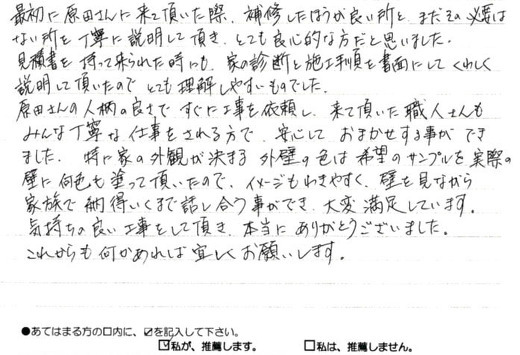 最初に原田さんに来て頂いた際、補修したほうが良い所と、まだその必要は
ない所を丁寧に説明して頂き、とても良心的な方だと思いました。
見積書を持って来られた時にも、家の診断と施工手順を書面にしてくわしく
説明して頂いたのでとても理解しやすいものでした。
原田さんの人柄の良さで、すぐに工事を依頼し、来て頂いた職人さんも
みんな丁寧な仕事をされる方で、安心しておまかせする事ができ
ました。特に家の外観が決まる外壁の色は希望のサンプルを実際の
壁に何色も塗って頂いたので、イメージもわきやすく、壁を見ながら
家族で納得いくまで話し合う事ができ、大変満足しています。
気持ちの良い工事をして頂き、本当にありがとうございました。
これからも何かあれば宜しくお願いします。
●あてはまる方の口内に、☑を記入して下さい。
☑私が、推薦します。 □私は、推薦しません。